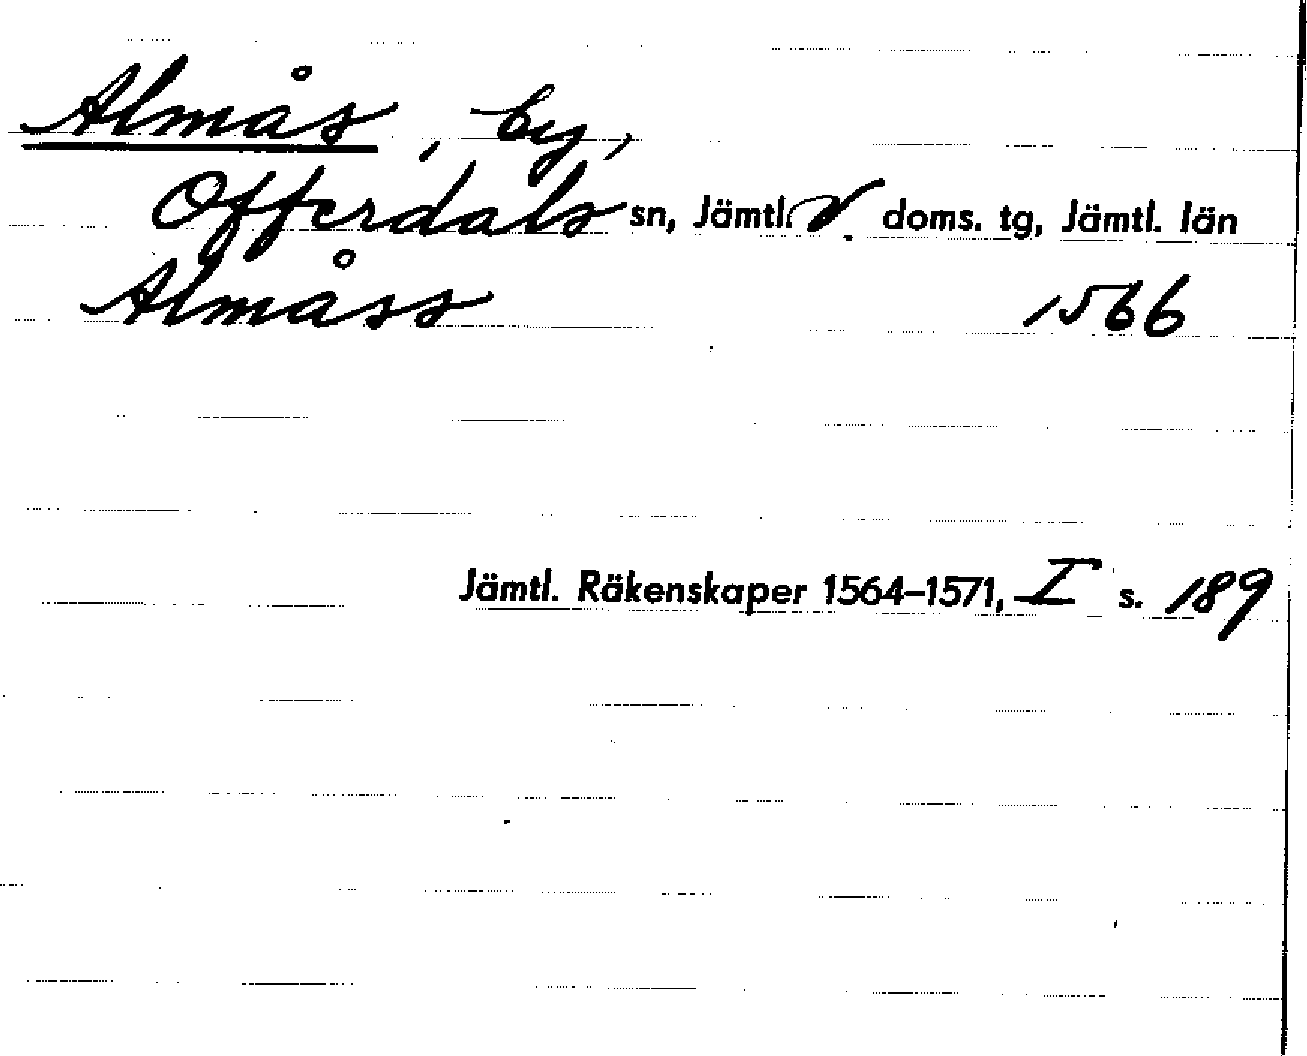 Almås, by,
Offerdals sn, Jämtl. V. doms. tg, Jämtl. län
Almåss 1566
Jämtl. Räkenskaper 1564–1571, I s. 189